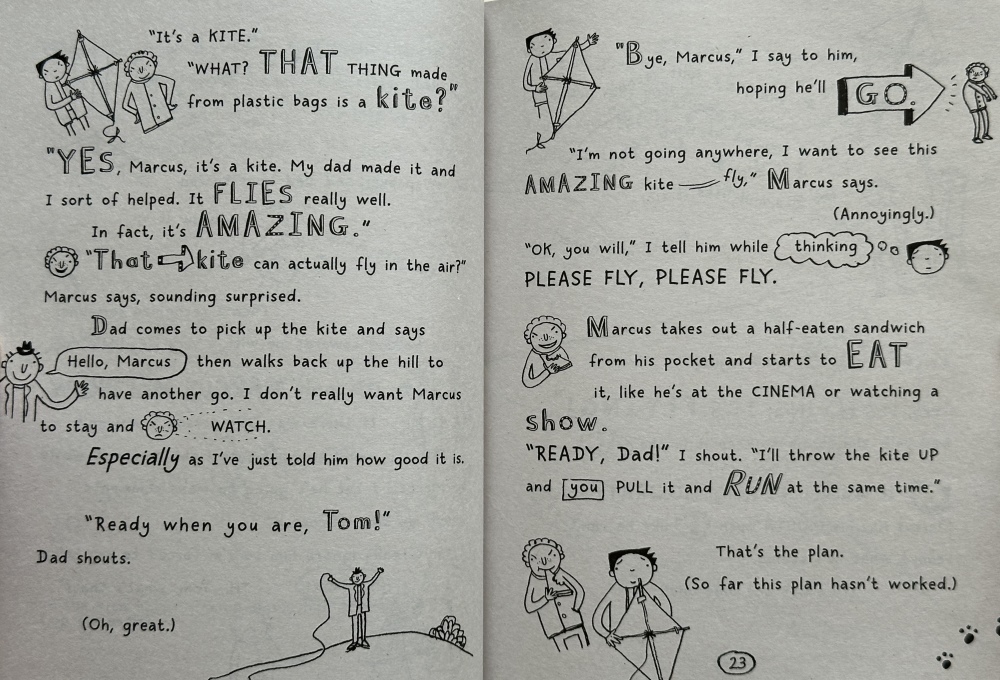 "It's a KITE."
"WHAT? THAT THING made
from plastic bags is a kite?"
"YES, Marcus, it's a kite. My dad made it and
I sort of helped. It FLIES really well.
In fact, it's AMAZING."
"That kite can actually fly in the air?"
Marcus says, sounding surprised.
Dad comes to pick up the kite and says
Hello, Marcus then walks back up the hill to
have another go. I don't really want Marcus
to stay and WATCH.
Especially as I've just told him how good it is.
"Ready when you are, Tom!"
Dad shouts.
(Oh, great.)
"Bye, Marcus," I say to him,
hoping he'll GO.
"I'm not going anywhere, I want to see this
AMAZING kite fly," Marcus says.
(Annoyingly.)
"OK, you will," I tell him while thinking
PLEASE FLY, PLEASE FLY.
Marcus takes out a half-eaten sandwich
from his pocket and starts to EAT
it, like he's at the CINEMA or watching a
show.
"READY, Dad!" I shout. "I'll throw the kite UP
and you PULL it and RUN at the same time."
That's the plan.
(So far this plan hasn't worked.)
23